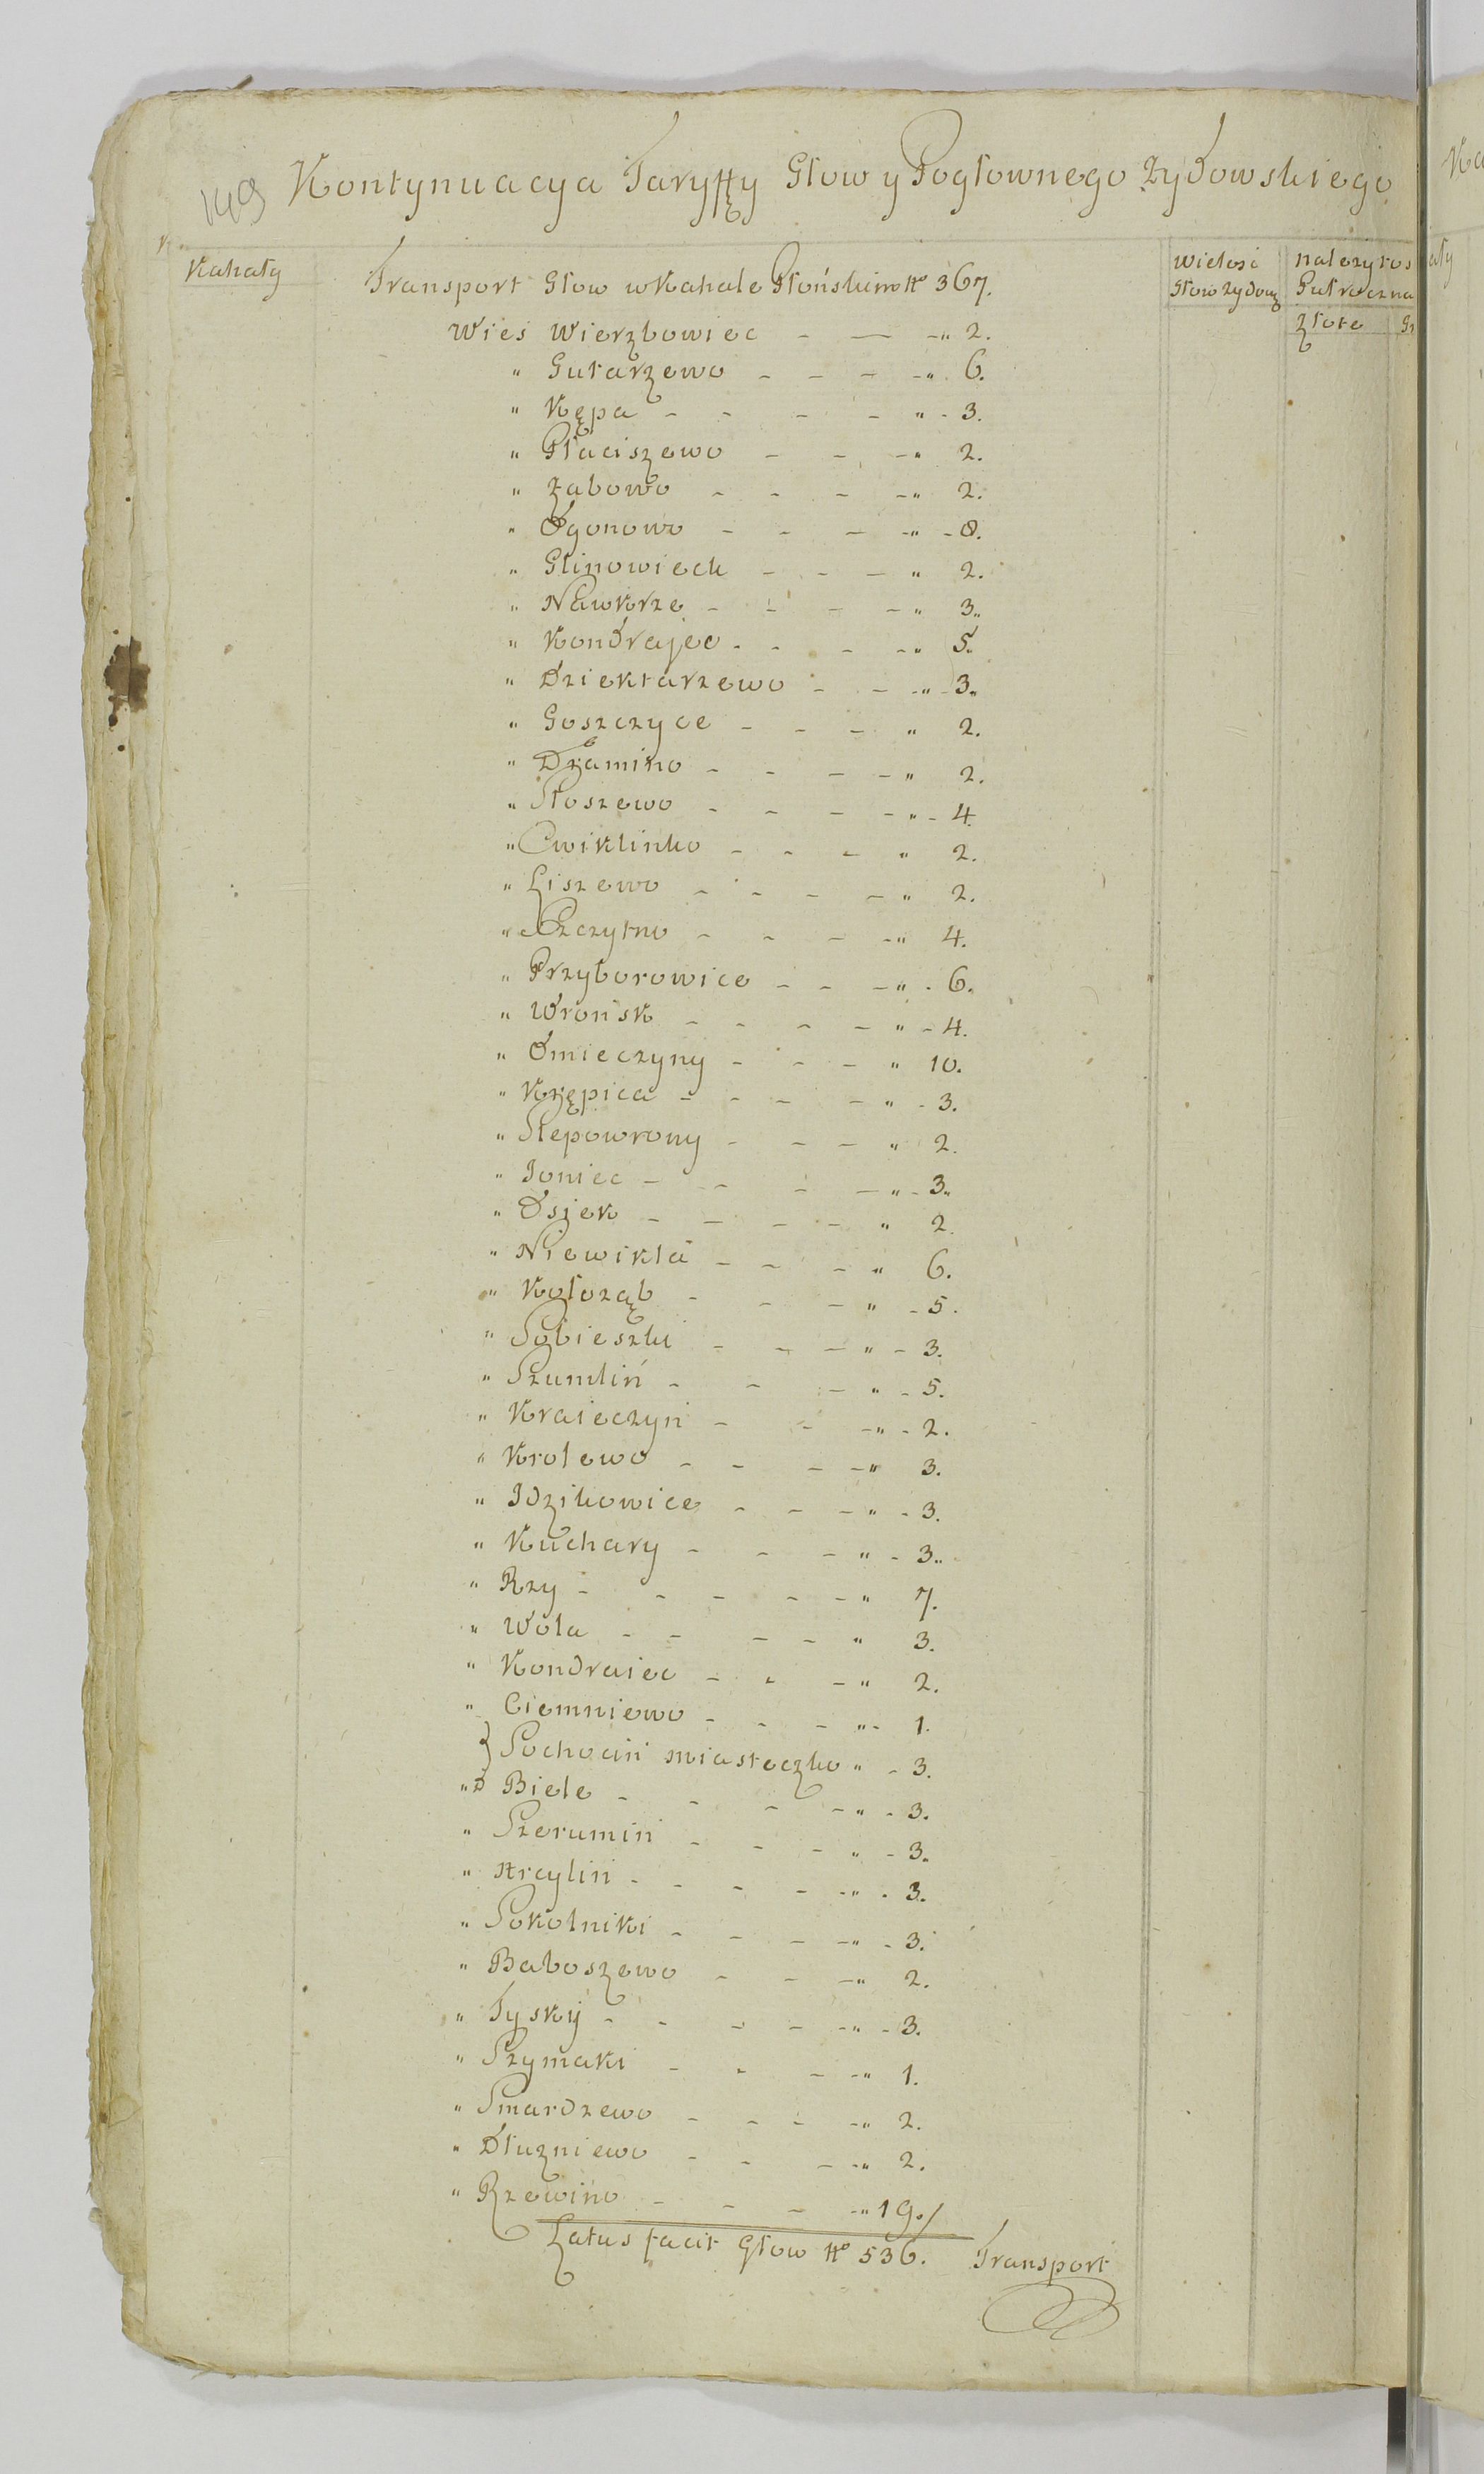 149 Kontynuacya Taryffy Głow y Pogłownego Zydowskiego
Kahały
Transport Głow w Kahale Płońskim No 367.
Wielosć Głow Zydow.
nalezytos Pułroczna
Złote Gr
Wieś Wierzbowiec - — -" 2.
" Gutarzewo - - - -" 6.
" Kępa - - - - " - 3.
" Płaciszewo - - -" 2.
" Zabowo - - - -" 2.
" Ogonowo - - - -" - 8.
" Glinowieck - - - " 2.
" Nawkrze - - - - " 3.
" Kondrajec - - - -" 5.
" Dziektarzewo - - -" - 3.
" Goszczyce - - - " 2.
" Dzamino - - - - " 2.
" Słoszewo - - - " - 4.
" Cwiklinko - - - " 2.
" Liszewo - - - - " 2.
" Szczytno - - - -" 4.
" Przyborowice - - -" - 6.
" Wronsk - - - - " - 4.
" Omieczyny - - - " 10.
" Krzępica - - - - " - 3.
" Slepowrony - - - " 2.
" Joniec - - - - " - 3.
" Osiek - - - - " 2.
" Niewikla - - - " 6.
" Kołoząb - - - " - 5.
" Sobieszki - - - " - 3.
" Szumlin - - - " - 5.
" Kraieczyn - - -" - 2.
" Krolewo - - - -" 3.
" Idzikowice - - - " - 3.
" Kuchary - - - " - 3.
" Rzy - - - - - " 7.
" Wola - - - - " 3.
" Kondraiec - - - " 2.
" Ciemniewo - - - " - 1.
} Sochocin miasteczko " - 3.
" Biele - - - - " - 3.
" Szerumin - - - " - 3.
" Arcylin - - - - -" - 3.
" Sokolniki - - - -" - 3.
" Baboszewo - - -" 2.
" Tysky - - - - -" - 3.
" Szymaki - - - -" 1.
" Smardzewo - - - -" 2.
" Dłuzniewo - - - -" 2.
" Rzewino - - - -" 19./
Latus facit Głow No 536. Transport
Ka
ały